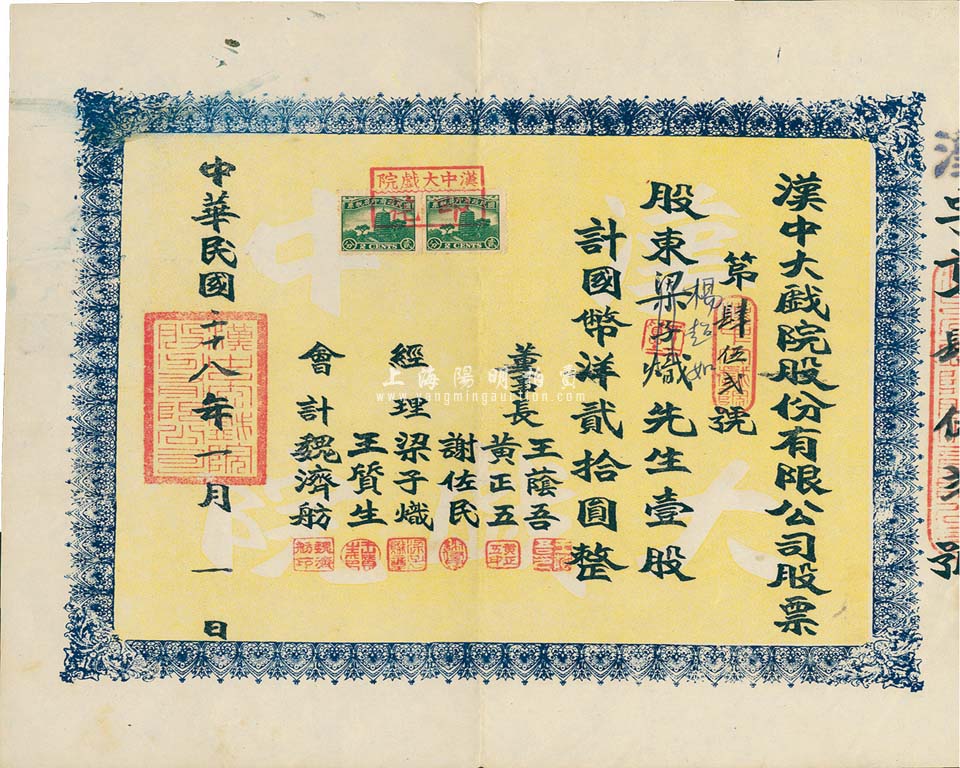 漢中大戲院股份有限公司股票
第肆伍弐號
股東梁子熾先生壹股
楊超如
計國幣洋貳拾圓整
董事長
王蔭吾
黃正五
謝佐民
經理
梁子熾
王質生
會計
魏濟舫
中華民國二十八年一月一日
漢中大戲院
2 CENTS
2 CENTS
漢中大戲院
上海陽明拍賣
www.yangmingauction.com